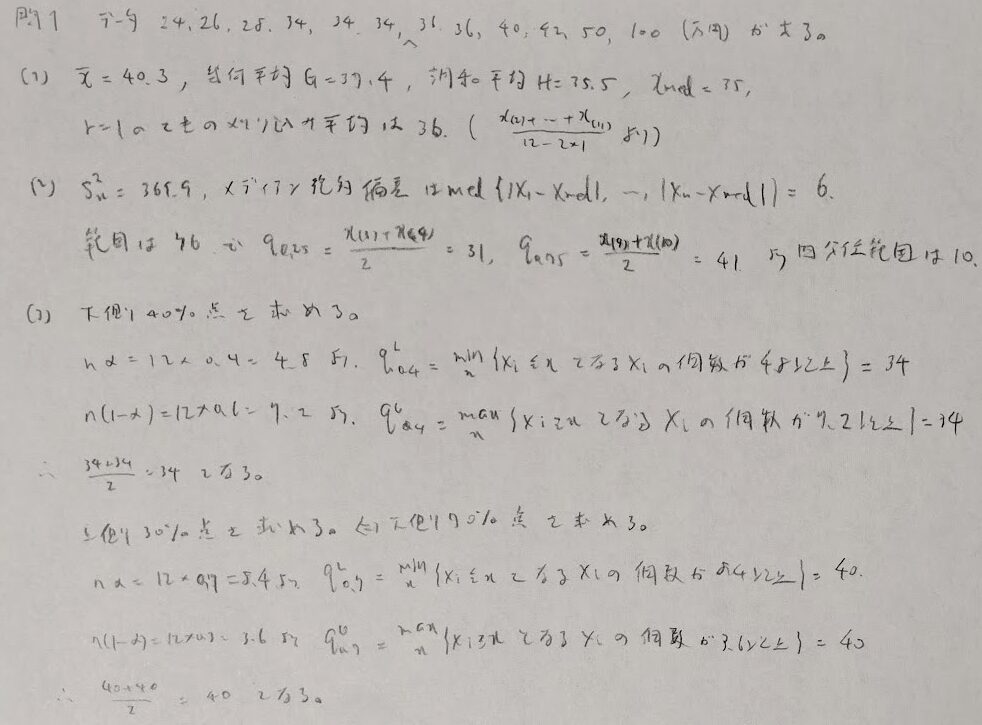 問1 データ 24, 26, 28, 34, 34, 34, 36, 36, 40, 42, 50, 100 (万円) がある。
(1) x̄ = 40.3, 幾何平均 G = 37.4, 調和平均 H = 35.5, xmed = 35,
r=1のときの刈り込み平均は 36. ( (x(2) + … + x(11)) / (12 - 2×1) より)
(2) S²n = 365.9, メディアン絶対偏差は med{|x1 - xmed|, …, |xn - xmed|} = 6.
範囲は 76 で q0.25 = (x(3) + x(4)) / 2 = 31, q0.75 = (x(9) + x(10)) / 2 = 41 より四分位範囲は 10.
(3) 下側 40% 点を求める。
nα = 12×0.4 = 4.8 より. qL0.4 = min x {xi ≤ x となる xi の個数が 4.8以上} = 34
n(1-α) = 12×0.6 = 7.2 より. qU0.4 = max x {xi ≥ x となる xi の個数が 7.2以上} = 34
∴ (34+34) / 2 = 34 となる。
上側 30% 点を求める。 ⇔ 下側 70% 点を求める。
nα = 12×0.7 = 8.4 より qL0.7 = min x {xi ≤ x となる xi の個数が 8.4以上} = 40.
n(1-α) = 12×0.3 = 3.6 より qU0.7 = max x {xi ≥ x となる xi の個数が 3.6以上} = 40
∴ (40+40) / 2 = 40 となる。